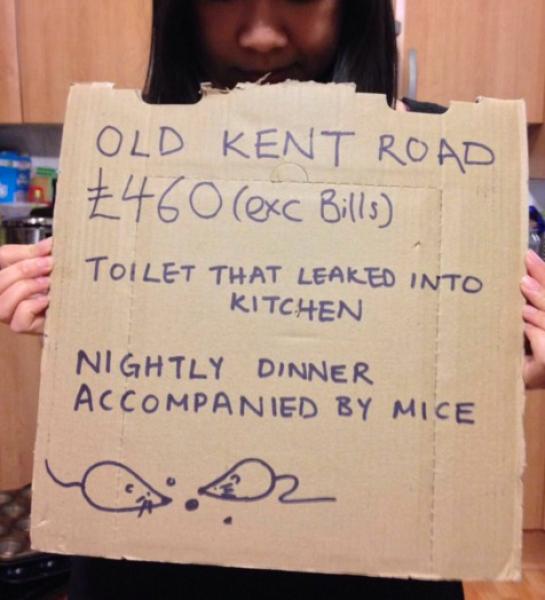 OLD KENT ROAD
£460 (exc Bills)
TOILET THAT LEAKED INTO
KITCHEN
NIGHTLY DINNER
ACCOMPANIED BY MICE